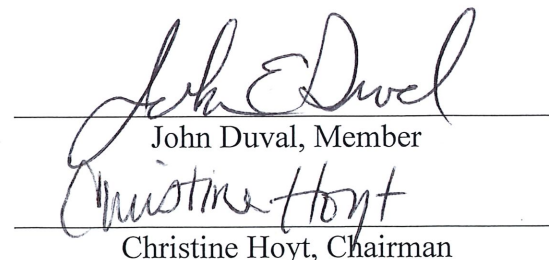 John E Duval
John Duval, Member
Christine Hoyt
Christine Hoyt, Chairman